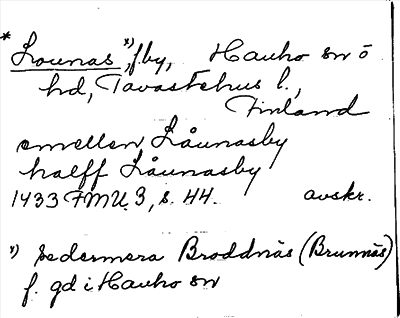 * Lounas *), f. by, Hauho sn ö
hd, Tavastehus l.,
Finland
emellan Låunasby
halff Låunasby
1433 FMU 3, s. 44. avskr.
*) sedermera Broddnäs (Brunnäs)
f. gd i Hauho sn